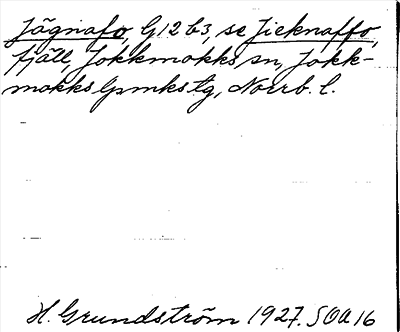 Jägnafo, G12 b3, se Jieknaffo,
fjäll, Jokkmokks sn, Jokk-
mokks lpmks tg, Norrb. l.
H. Grundström 1927. SOA 16